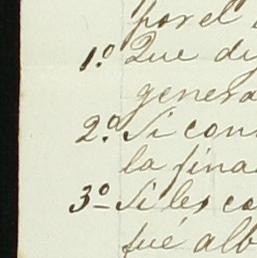 por el
1.º Que di
genera
2.º Si con
la fina
3º Si les co
fué alb